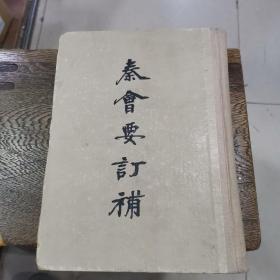 秦會要訂補